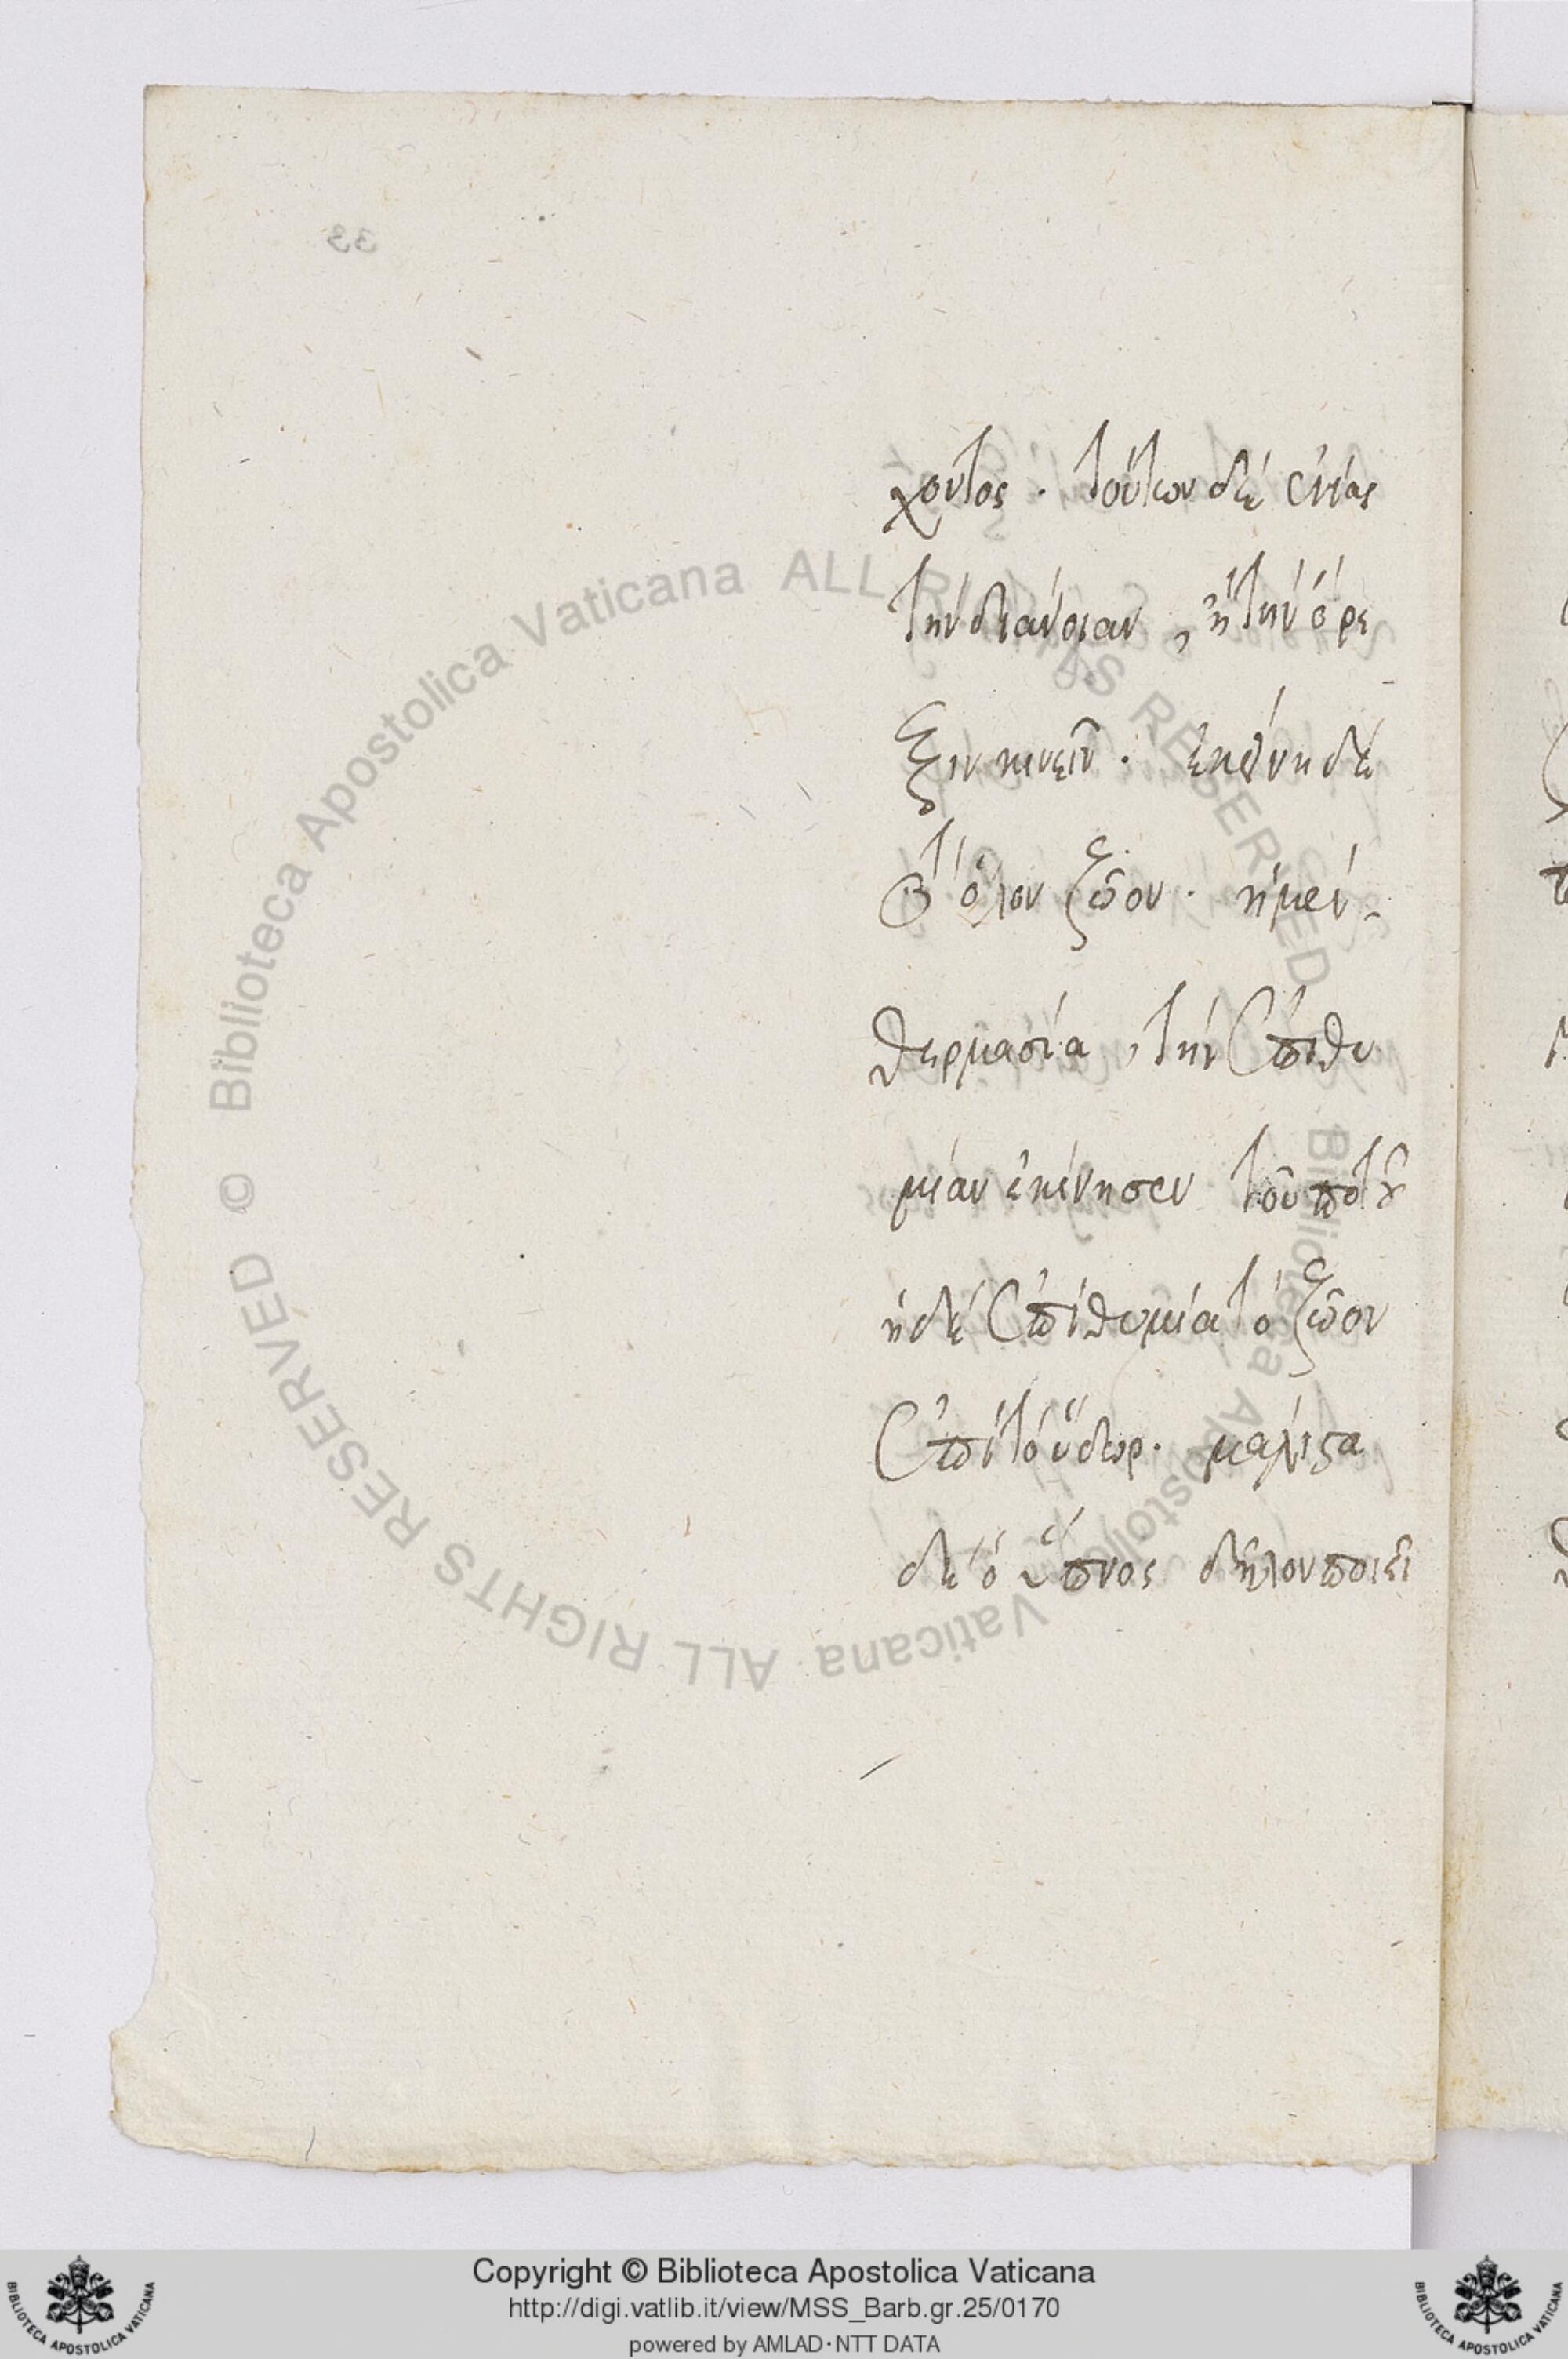 χοντος. τούτων δὲ ἐνίας
τὴν διάνοιαν, ἢ τὴν ὄρε
ξιν κινεῖν. ἐκείνη δὲ
τὸ ὅλον ζῶον. ἡ μὲν
θερμασία, τὴν ἐπιθυ
μίαν ἐκίνησεν τοῦ ποτοῦ
ἡ δὲ ἐπιθυμία τὸ ζῶον
ἐπὶ τὸ ὕδωρ. μάλιστα
δὲ ὁ ὕπνος δῆλον ποιεῖ
33
© Biblioteca Apostolica Vaticana ALL RIGHTS RESERVED
Biblioteca Apostolica Vaticana ALL RIGHTS RESERVED
Copyright © Biblioteca Apostolica Vaticana
http://digi.vatlib.it/view/MSS_Barb.gr.25/0170
powered by AMLAD·NTT DATA
BIBLIOTECA APOSTOLICA VATICANA
BIBLIOTECA APOSTOLICA VATICANA